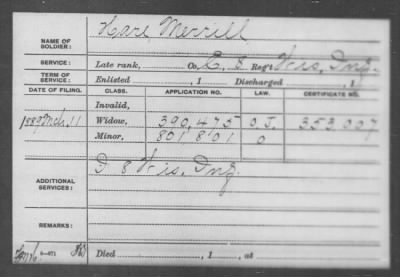 NAME OF SOLDIER: Hare, Merrill
SERVICE: Late rank, Co. E. 8 Reg't Wis. Inf.
TERM OF SERVICE: Enlisted , 1 Discharged , 1
DATE OF FILING. CLASS. APPLICATION NO. LAW. CERTIFICATE NO.
Invalid,
1889 Mch. 11 Widow, 390,475 O.J. 353.007
Minor, 801801 O
ADDITIONAL SERVICES: D 8 Wis. Inf.
REMARKS:
3—071 Died , 1 , at